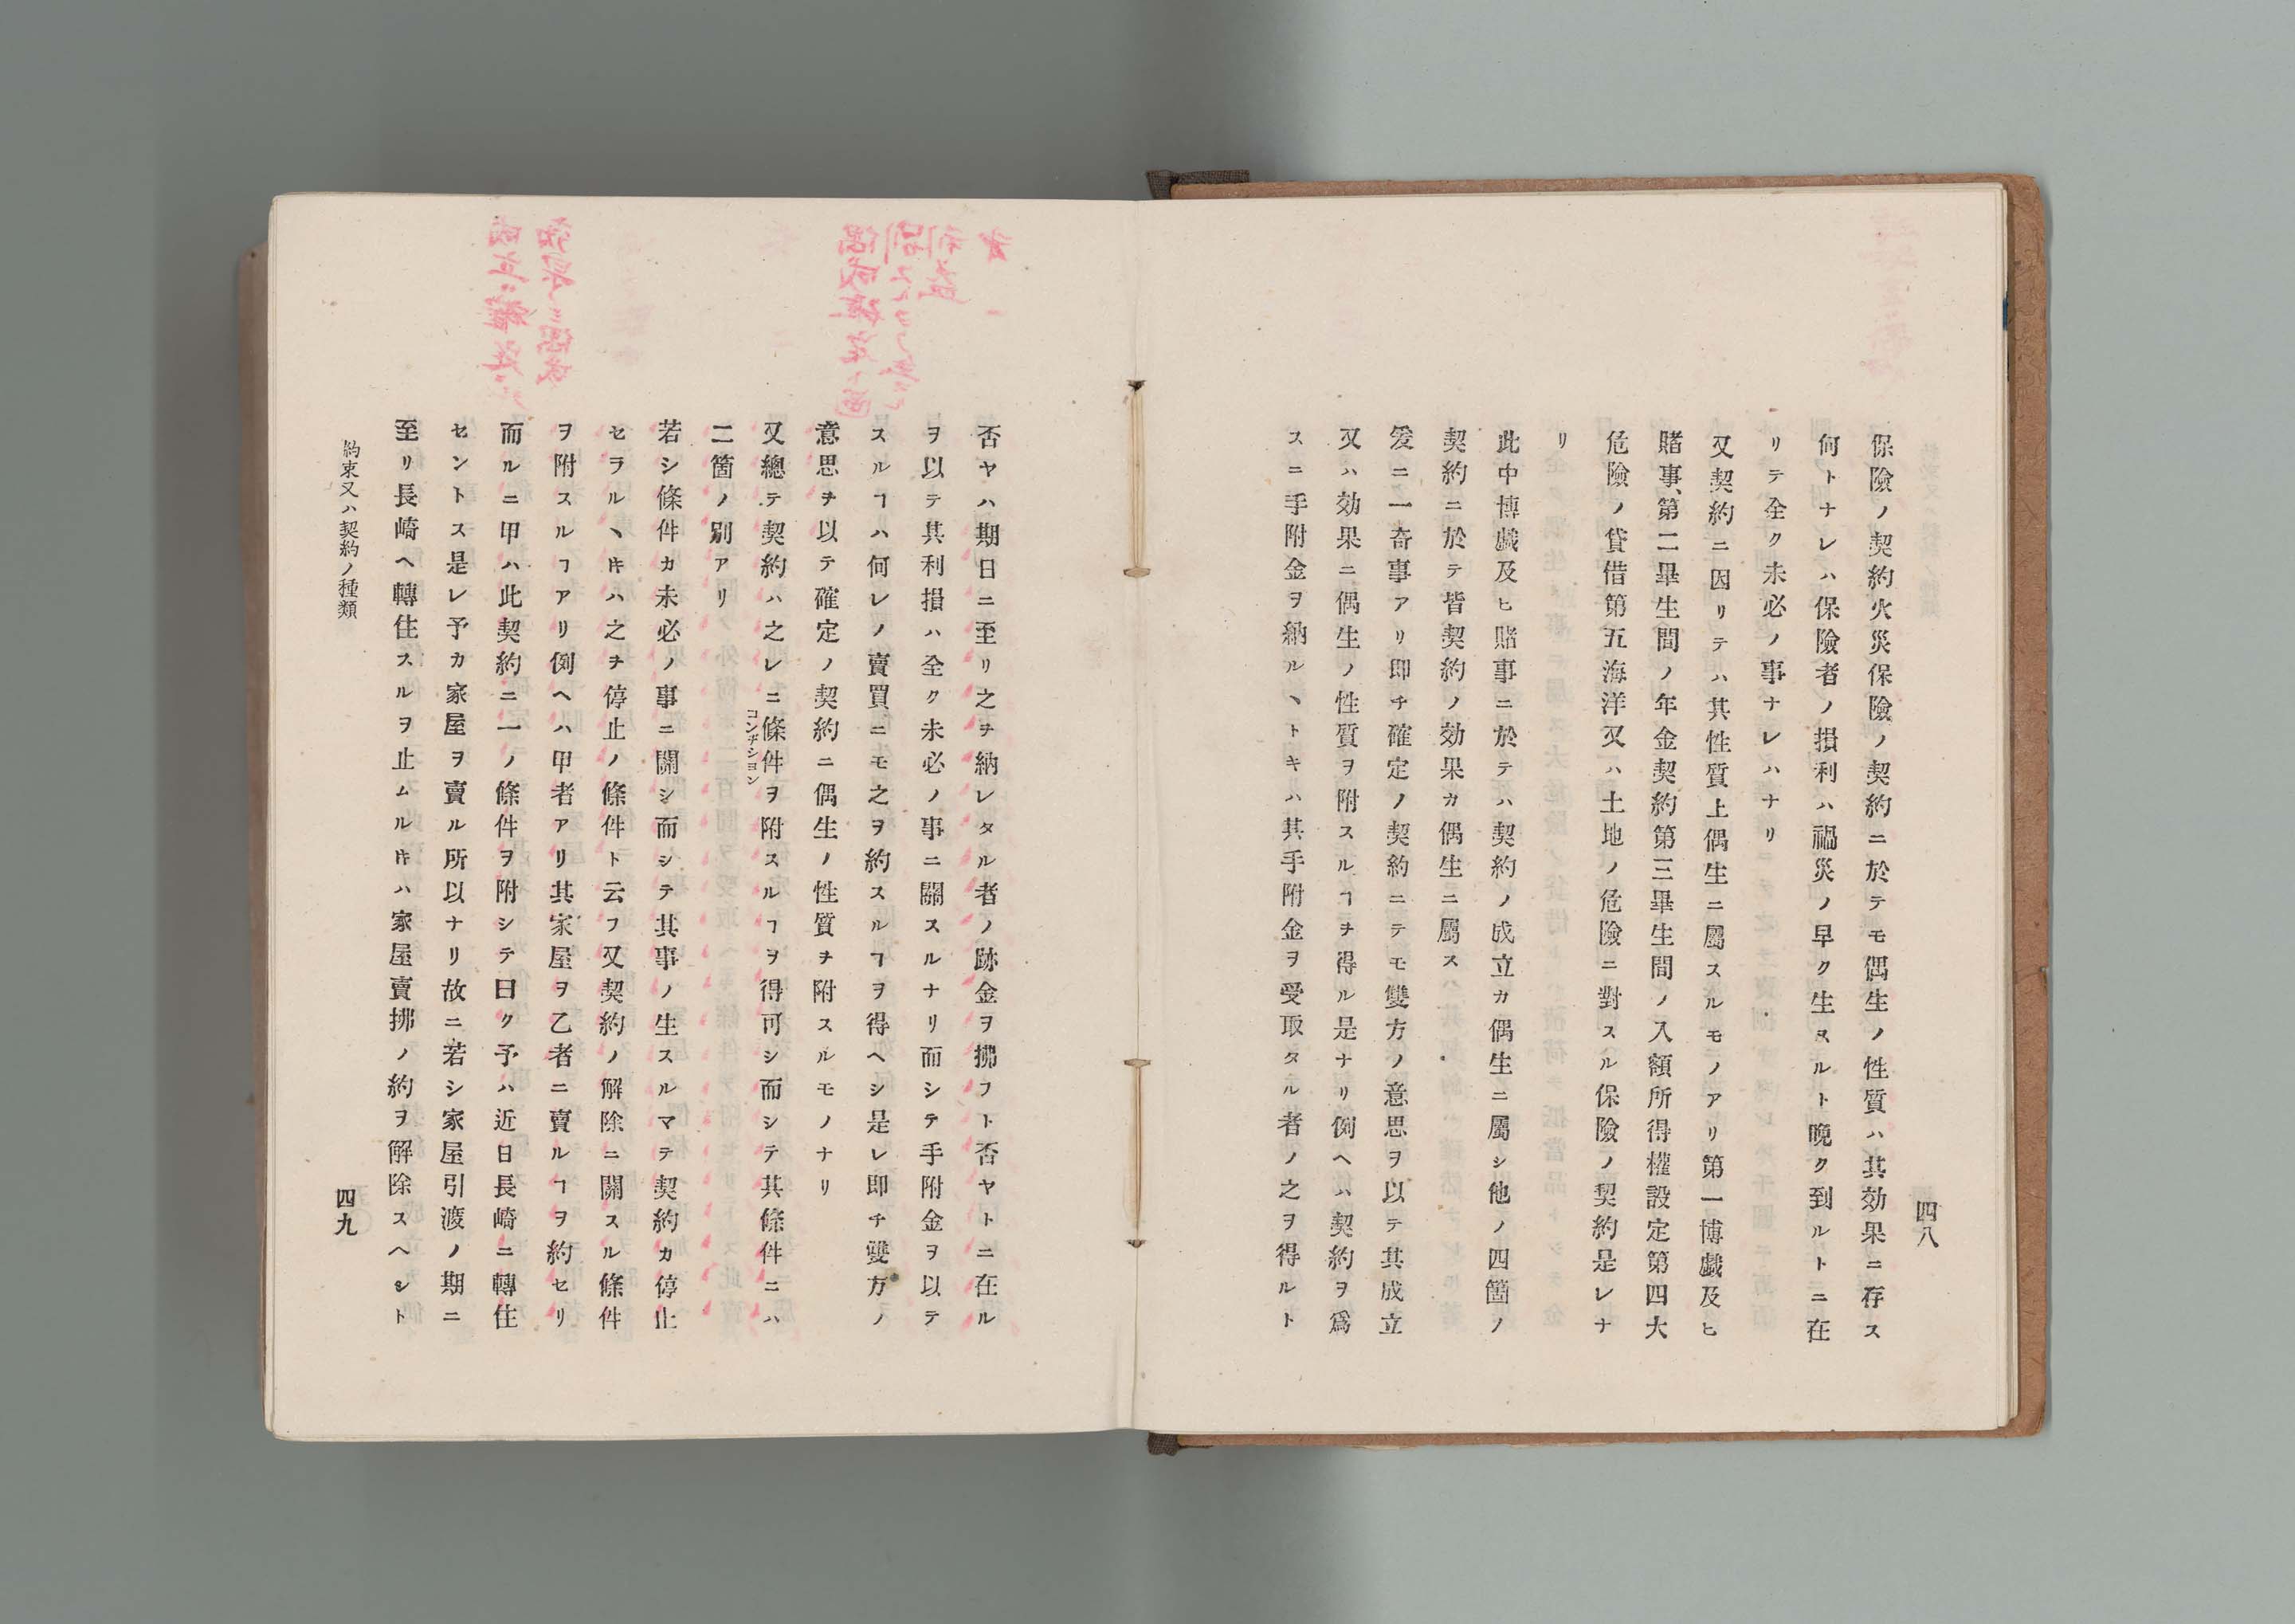 四八
保險ノ契約火災保險ノ契約ニ於テモ偶生ノ性質ハ其効果ニ存ス
何トナレハ保險者ノ損利ハ禍災ノ早ク生スルト晩ク到ルトニ在
リテ全ク未必ノ事ナレハナリ
又契約ニ因リテハ其性質上偶生ニ屬スルモノアリ第一博戯及ヒ
賭事、第二畢生間ノ年金契約第三畢生間ノ入額所得權設定第四大
危險ノ貸借第五海洋又ハ土地ノ危險ニ對スル保險ノ契約是レナ
リ
此中博戯及ヒ賭事ニ於テハ契約ノ成立カ偶生ニ屬シ他ノ四箇ノ
契約ニ於テ皆契約ノ効果カ偶生ニ屬ス
爰ニ一奇事アリ即チ確定ノ契約ニテモ雙方ノ意思ヲ以テ其成立
又ハ効果ニ偶生ノ性質ヲ附スルヿヲ得ル是ナリ例ヘハ契約ヲ爲
スニ手附金ヲ納ルヽトキハ其手附金ヲ受取タル者ノ之ヲ得ルト
否ヤハ期日ニ至リ之ヲ納レタル者ノ跡金ヲ拂フト否ヤトニ在ル
ヲ以テ其利損ハ全ク未必ノ事ニ關スルナリ而シテ手附金ヲ以テ
スルヿハ何レノ賣買ニモ之ヲ約スルヿヲ得ヘシ是レ即チ雙方ノ
意思ヲ以テ確定ノ契約ニ偶生ノ性質ヲ附スルモノナリ
又總テ契約ハ之レニ條件ヲ附スルヿヲ得可シ而シテ其條件ニハ
コンヂション
二箇ノ別アリ
若シ條件カ未必ノ事ニ關シ而シテ其事ノ生スルマテ契約カ停止
セラルヽ𪜈ハ之ヲ停止ノ條件ト云フ又契約ノ解除ニ關スル條件
ヲ附スルヿアリ例ヘハ甲者アリ其家屋ヲ乙者ニ賣ルヿヲ約セリ
而ルニ甲ハ此契約ニ一ノ條件ヲ附シテ曰ク予ハ近日長崎ニ轉住
セントス是レ予カ家屋ヲ賣ル所以ナリ故ニ若シ家屋引渡ノ期ニ
至リ長崎ヘ轉住スルヲ止ムル𪜈ハ家屋賣拂ノ約ヲ解除スヘシト
約束又ハ契約ノ種類
四九